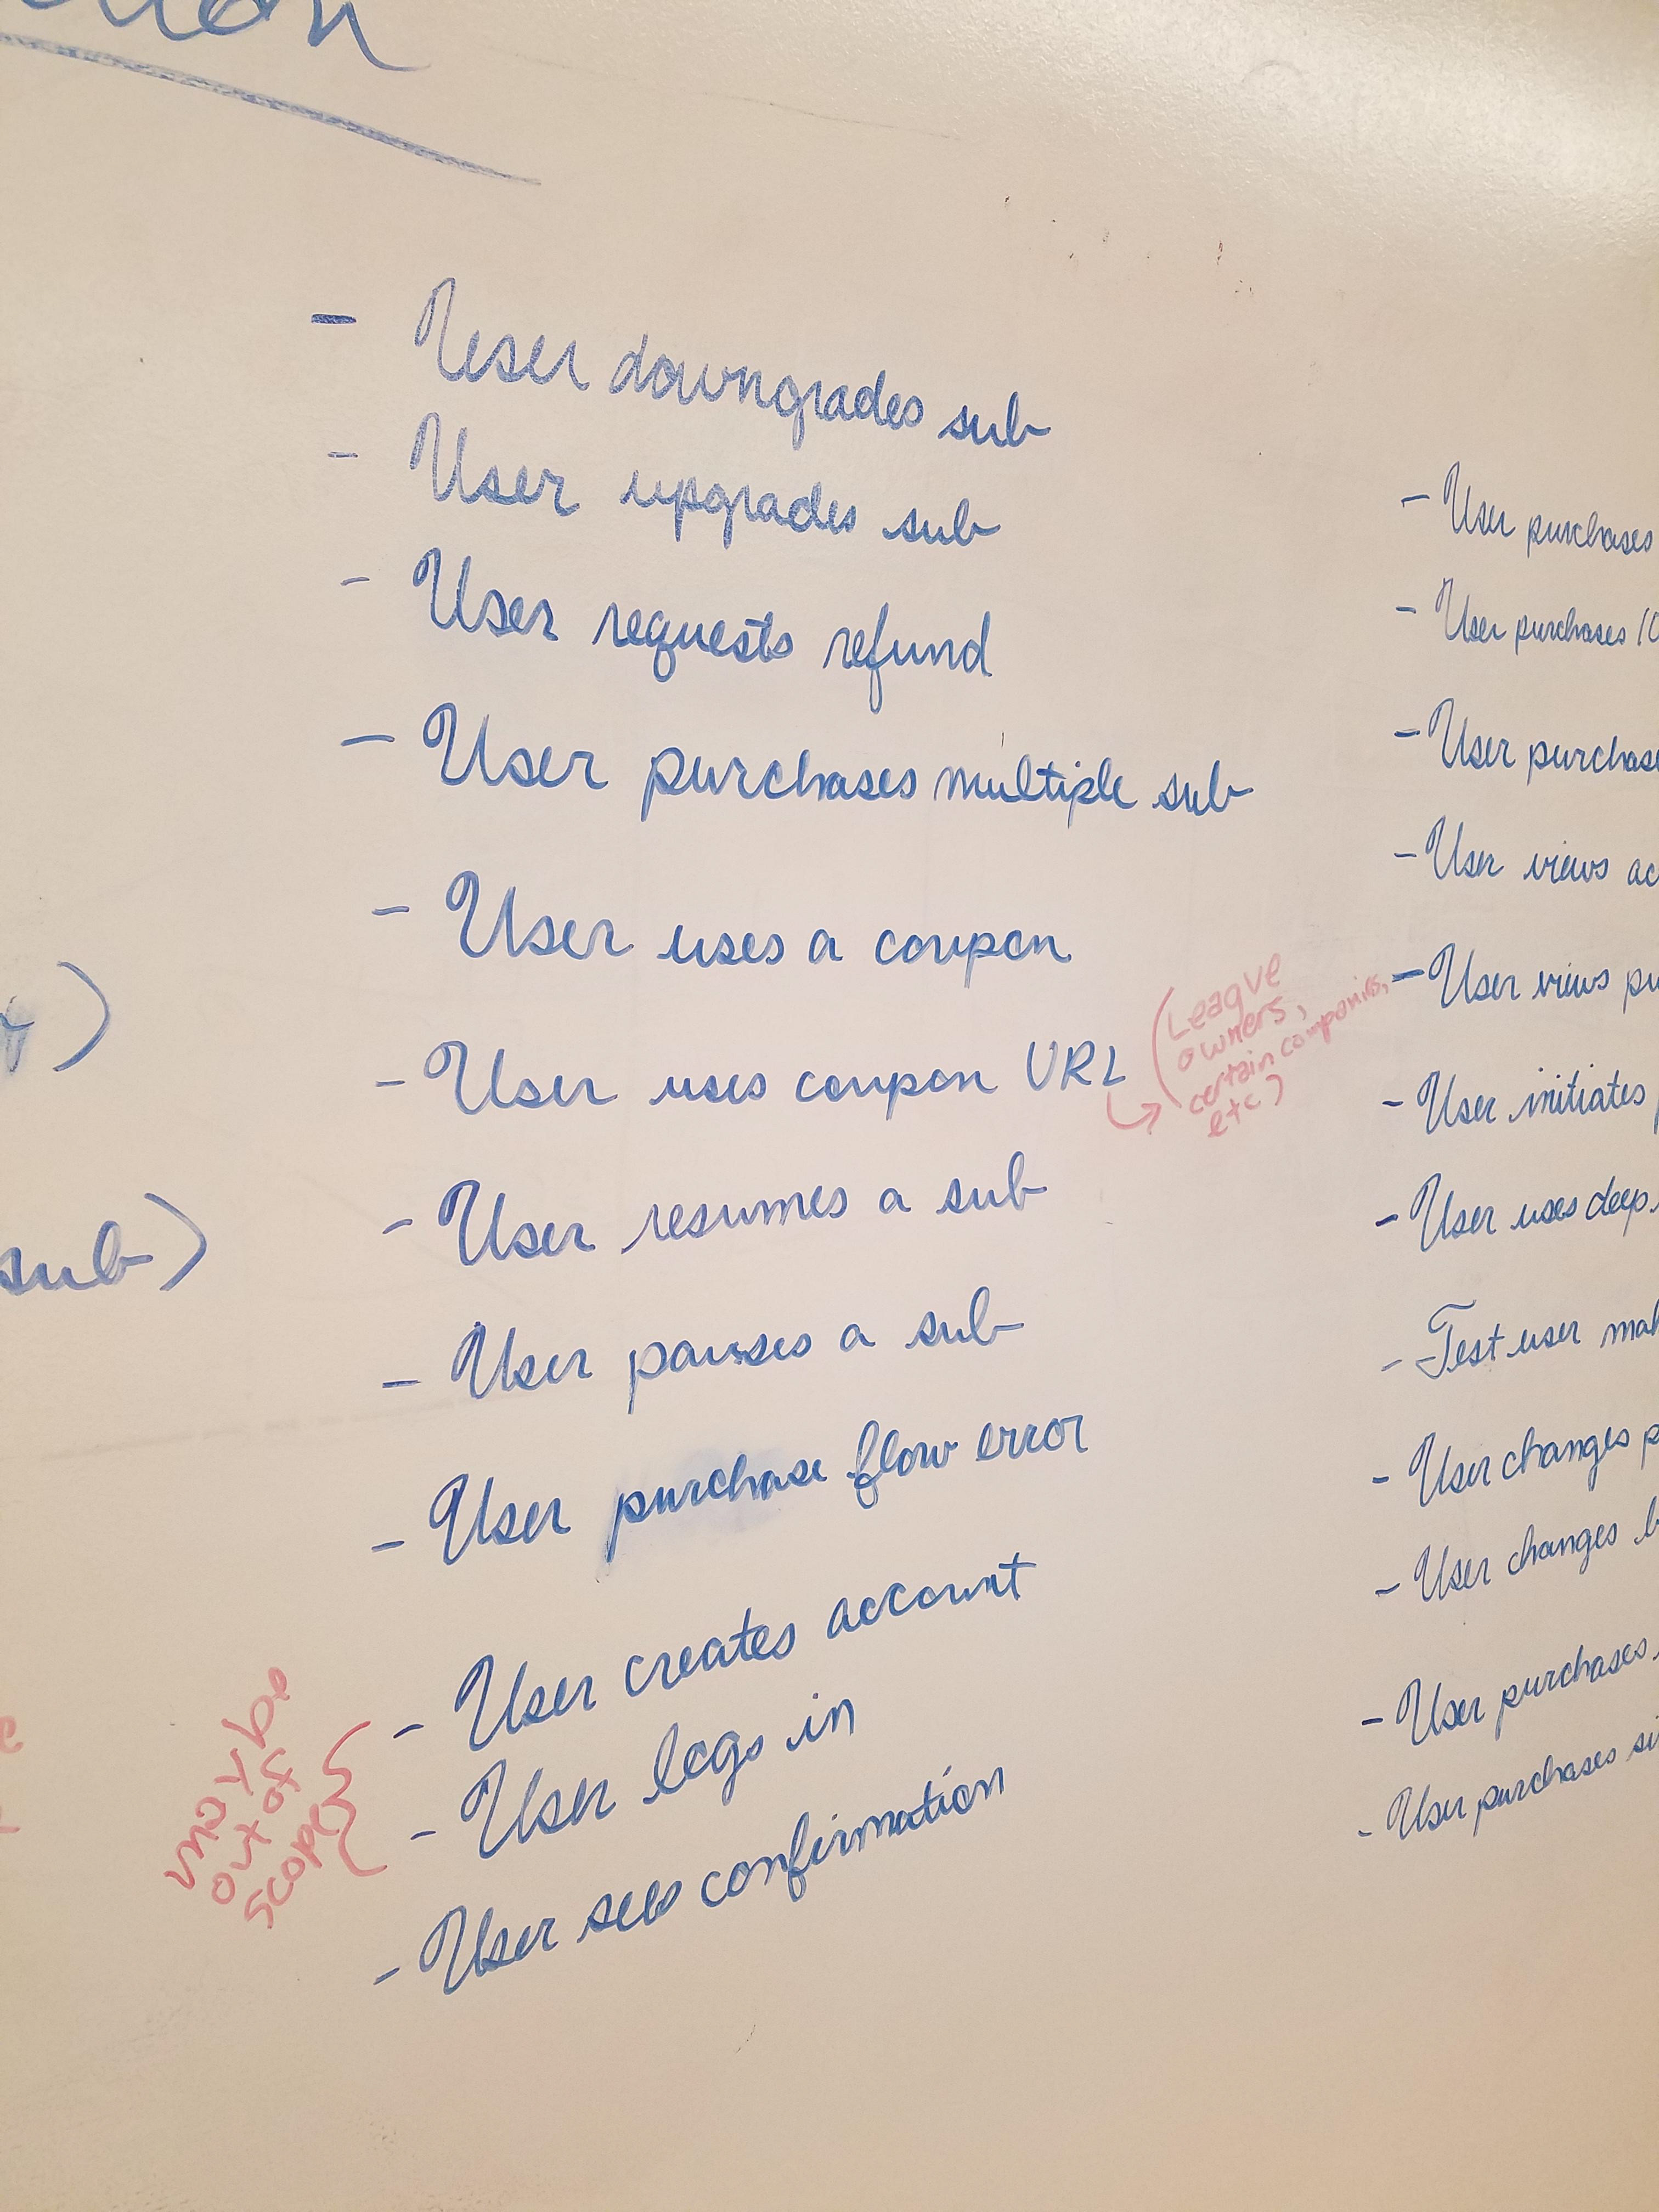 - User downgrades sub
- User upgrades sub
- User requests refund
- User purchases multiple sub
- User uses a coupon
- User uses coupon URL
(League
owners,
certain companies,
etc)
- User resumes a sub
- User pauses a sub
- User purchase flow error
- User creates account
- User logs in
maybe
out of
scope
- User sees confirmation
sub)
- User purchases
- User purchases
- User purchase
- User views
- User views
- User initiates
- User uses deep
- Test user
- User changes
- User changes
- User purchases
- User purchases